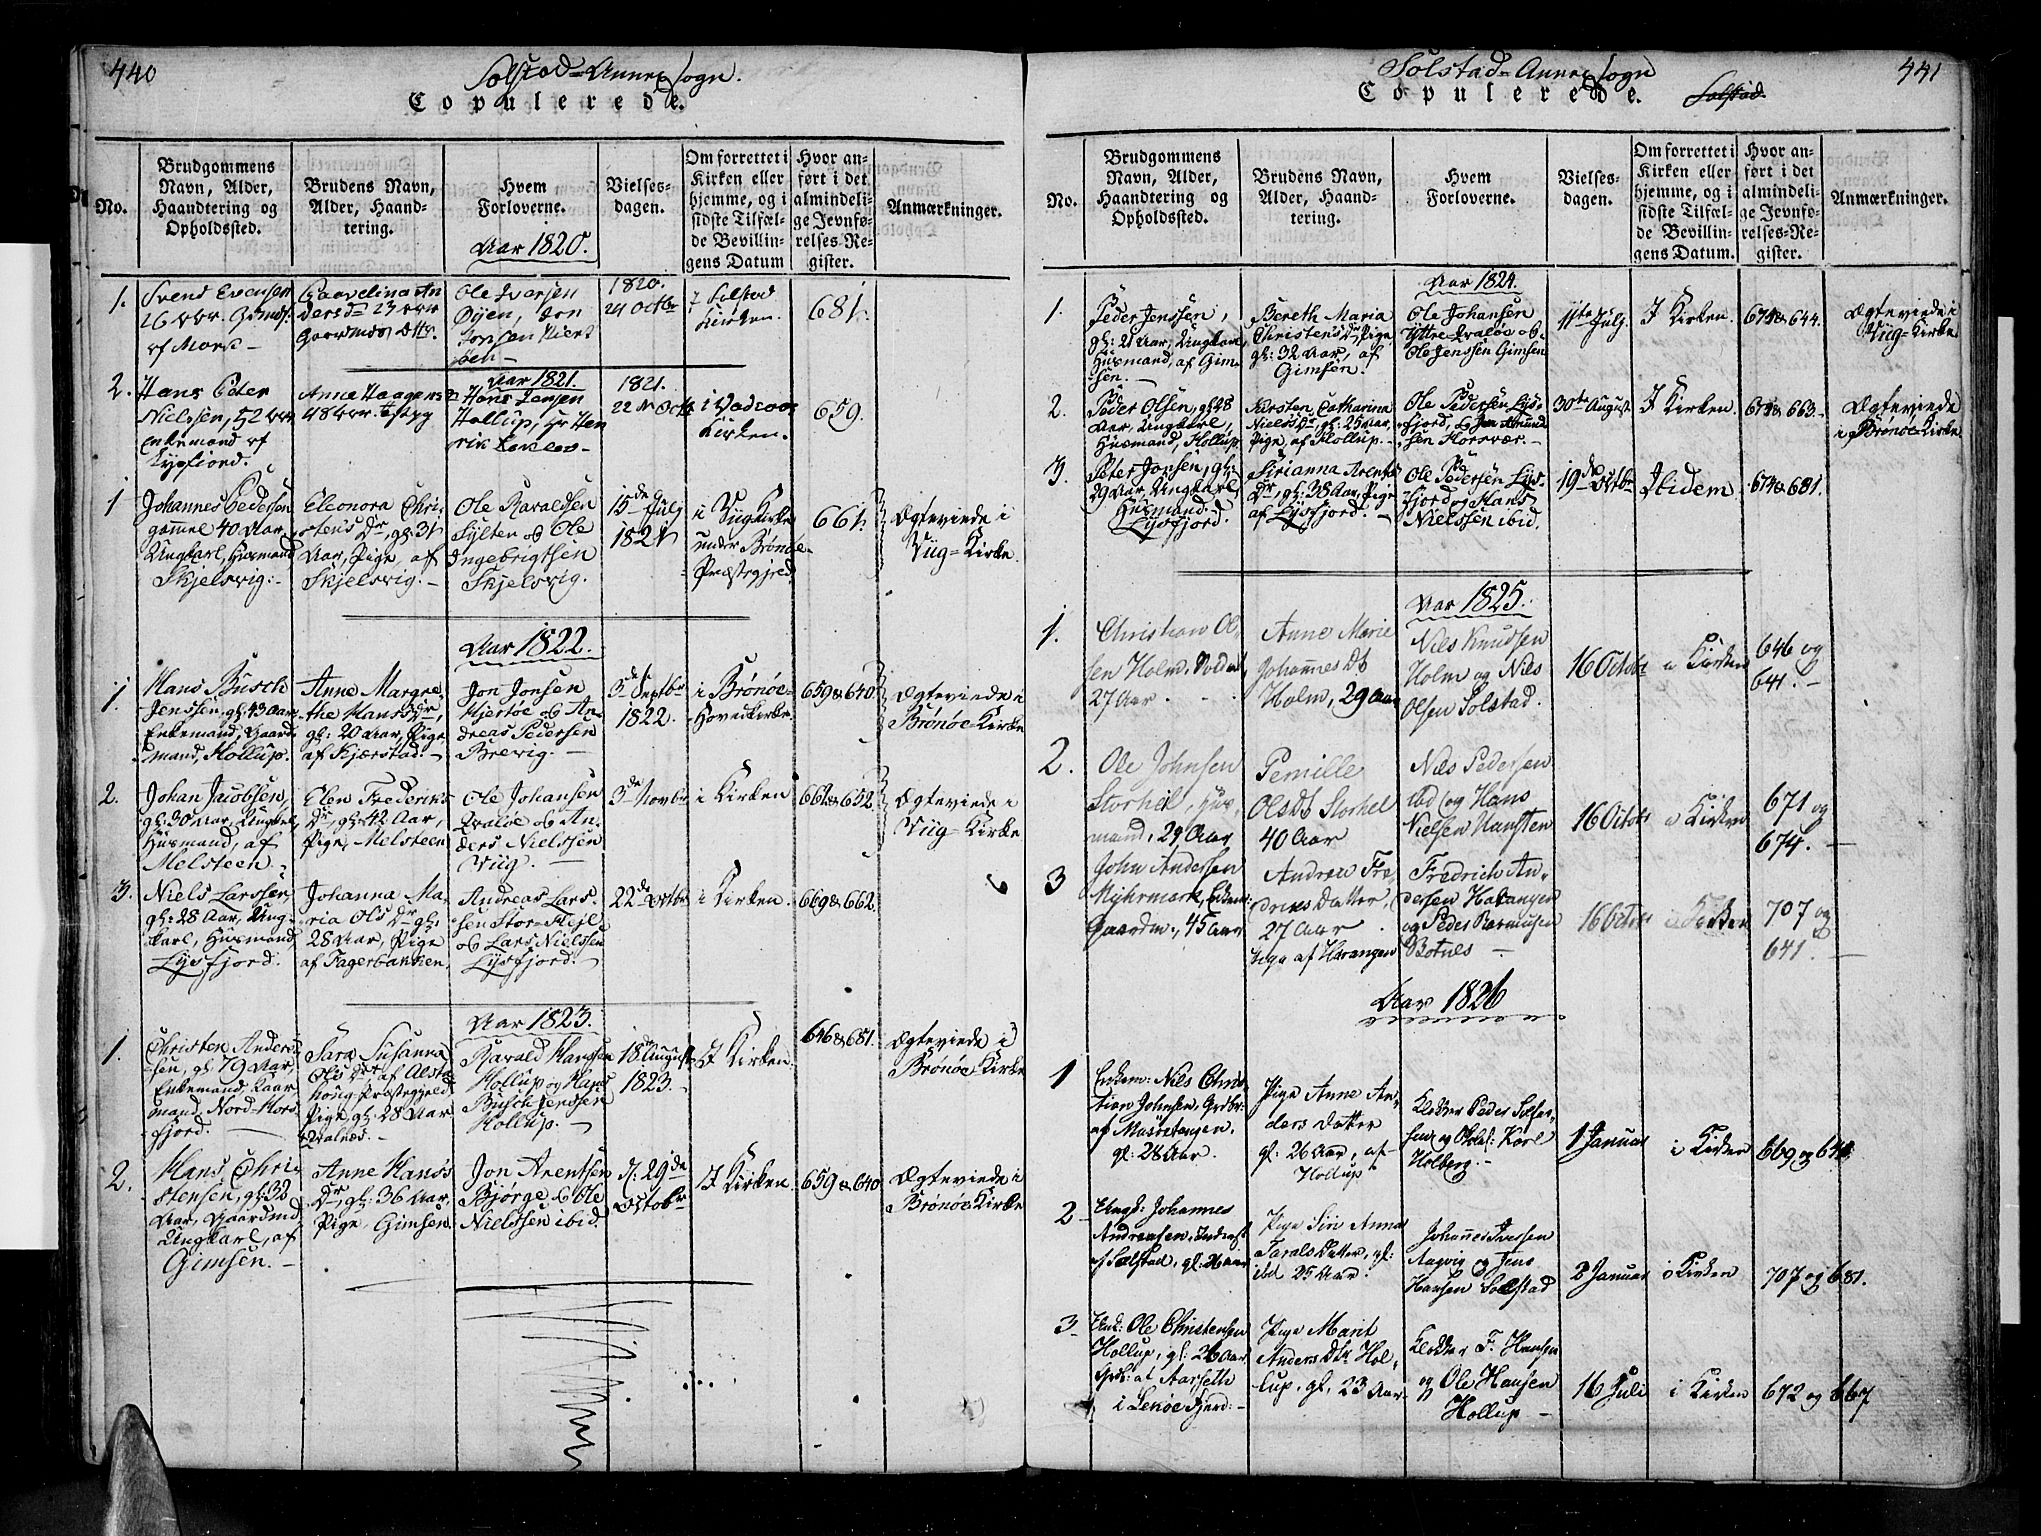 440
Solstad-Annex Sogn.
Copulerede.
No.
Brudgommens Navn, Alder, Haandtering og Opholdssted.
Brudens Navn, Alder, Haandtering.
Hvem Forloverne.
Vielsesdagen.
Om forrettet i Kirken eller hjemme, og i sidste Tilfælde Bevillingens Datum
Hvor anført i det almindelige Jevnførelses-Register.
Anmærkninger.
Aar 1820.
1.
Svend
Ole Iversen
1820.
24 Octbr
i Solstad
Kirken.
681.
Aar 1821.
2.
Hans Peter
Nielssen, 52
Enkemand af
Anne Haagens
48
Hans Jensen
Hollup,
1821.
22 Octb
i
Kirken.
659.
1
Johannes Pedersen
gammel 40 Aar,
Ungkarl, Huusmand
Skjelsvig.
Eleonora Chri-
stens Dr, gl: 31
Aar, Pige, af
Skjelsvig.
Ole Haraldsen
Sylten og Ole
Ingebrigtsen
Skjelsvig.
15de July
1821
i Viig Kirke
under Brønøe
Præstegjeld
661.
Ægteviede i
Viig-Kirke.
Aar 1822.
1.
Hans Busch
Jenssen, gl: 43 Aar,
Enkemand, Gaard-
mand, Hollup.
Anne Margre-
the Hans Dr,
gl: 20 Aar, Pige
af Kjærstad.
Jon Jonsen
Hjortøe og An-
dreas Pedersen
Brevig.
Septbr
1822.
i Brønøe-
Hovedkirke
659 & 640.
Ægteviede i
Brønøe Kirke
2.
Johan Jacobsen,
gl: 30 Aar, Ungkarl,
Huusmand, af
Melsteen.
Elen Frederiks
Dr, gl: 42 Aar,
Pige, Melsteen
Ole Johansen
Qvaløe og An-
ders Nielssen
Viig.
3de Novbr
i Kirken
661 & 652.
Ægteviede i
Viig-Kirke
3.
Niels Larssen,
gl: 28 Aar, Ung-
karl, Huusmand
Lysfjord.
Johanna Ma-
ria Ols Dr gl:
28 Aar, Pige
af Fagerbakken.
Andreas Lars-
sen Stor-Hejl
og Lars Nielssen
Lysfjord.
22de Octbr
i Kirken.
669 & 662.
Aar 1823.
1.
Christen Anders-
sen, gl: 79 Aar,
Enkemand, Gaar-
mand, Nord-Hors-
fjord.
Sara Susanna
Ols Dr af Alsta-
houg-Præstegjeld
Pige, gl: 28 Aar
Harald Hanssen
Hollup og Hans
Busch Jenssen
Hollup.
18de August
1823.
I Kirken.
646 & 681.
Ægteviede i
Brønøe Kirke
2.
Hans Chri-
stensen, gl: 32
Aar, Gaardmd
Ungkarl, af
Gimsen.
Anne Hans
Dr, gl: 36 Aar,
Pige, Gimsen.
Jon Arenssen
Bjørge & Ole
Nielssen ibid.
d: 29de
Octobr
I Kirken.
659 & 640
Ægteviede i
Brønøe Kirke
441
Solstad-Annex Sogn
Copulerede.
Solstad
No.
Brudgommens Navn, Alder, Haandtering og Opholdssted.
Brudens Navn, Alder, Haandtering.
Hvem Forloverne.
Vielsesdagen.
Om forrettet i Kirken eller hjemme, og i sidste Tilfælde Bevillingens Datum.
Hvor anført i det almindelige Jevnførelses-Register.
Anmærkninger.
Aar 1824.
1.
Peder Jenssen,
gl: 21 Aar, Ungkarl,
Huusmand, af Gim-
sen.
Bereth Maria
Christens Dr, Pige,
gl: 32 Aar, af
Gimsen.
Ole Johansen,
Yttre Qvaløe og
Ole Jenssen Gimsen
11te July.
I Kirken.
674 & 644.
Ægteviede i
Viig-Kirke
2.
Peder Olsen, gl: 48
Aar, Ungkarl,
Huusmand, Hollup
Kirsten Catharina
Niels Dr, gl: 25 Aar,
Pige, af Hollup.
Ole Pedersen Lys-
fjord, og Jon Amund-
sen Horsvær.
30te August
I Kirken.
674 & 663.
Ægteviede
i Brønøe Kirke
3.
Peter Jonsen, gl:
29 Aar, Ungkarl,
Huusmand
Lysfjord.
Sirianna Arents
Dr, gl: 38 Aar, Pige
af Lysfjord.
Ole Pedersen Lys-
fjord og Hans
Nielssen ibid.
19de Octbr
Ibidem
674 & 681.
Aar 1825.
1.
Christian Ol-
sen Holm, Soldat
27 Aar
Anne Marie
Johannes Dt
Holm, 29 Aar
Niels Knudsen
Holm og Niels
Olsen Solstad.
16 Octobr
i Kirken
646 og
641.
2.
Ole Johnsen
Storhel, Huus-
mand, 29 Aar
Pernille
Ols Dt Storhel
40 Aar
Niels Pedersen
ibd og Hans
Nielsen
16 Octobr
i Kirken
671 og
674.
3
John Andersen
Myhrmark, Enkem:
Gaardm:, 45 Aar
Andrea Fre-
driks Datter,
27 Aar
Pige af Harangen
Fredrich An-
dersen Harangen
og Peder Rasmusen
Botnes
16 Octobr
i Kirken
707 og
641.
Aar 1826
1
Enkem: Nils Chris-
tian Johnsen, Grdbr:
af
gl: 28 Aar.
Pige Anne An-
ders Datter
gl: 26 Aar, af
Hollup
Klokker Peder
Holberg.
1 Januar
i Kirken
669 og 641
2
Ungk: Johannes
Andreasen,
af Solstad, gl:
Pige Siri Anna
Tarals Datter, gl:
ibd 25 Aar.
Johannes Iversen
Aagvig og Jens
Hansen Solstad
2 Januar
i Kirken
707 og 681.
3
Enk: Ole Christensen
Hollup, gl: 26 Aar
Grdb: at Aarseth
i Lekøe Fjerd:
Pige Marit
Anders Dtr Hol-
lup, gl, 23 Aar
Klokker F. Hansen
og Ole Hansen
Hollup
16 Juli
i Kirken
672 og 667